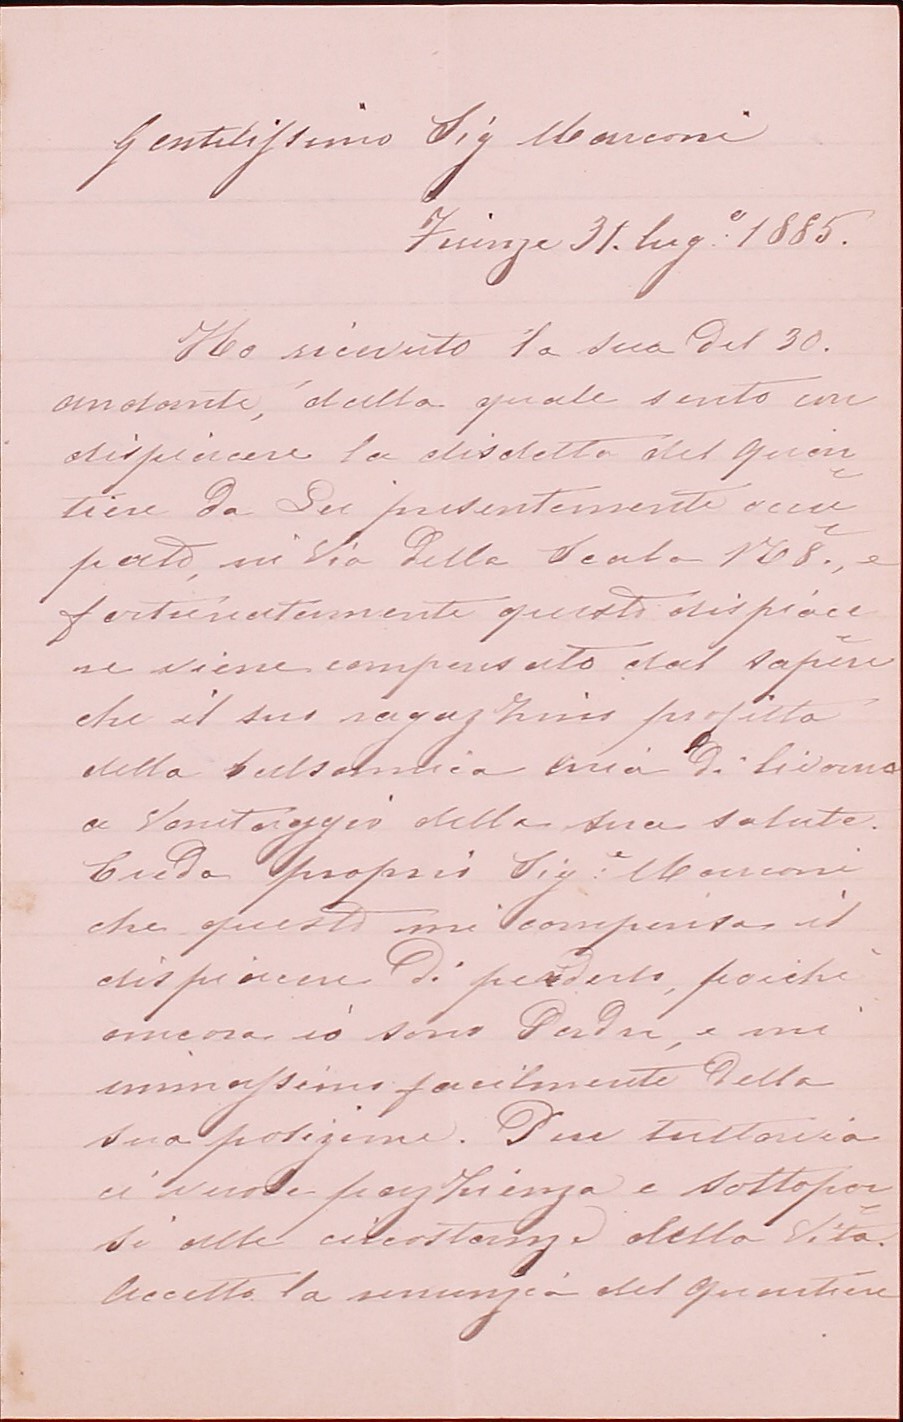 Gentilissimo Sig Marconi
Firenze 31. Lug.º 1885.
Ho ricevuto la sua del 30.
andante, dalla quale sento con
dispiacere la disdetta del quar
tiere da Lei presentemente occu
pato, in Via della Scala N 8., e
fortunatamente questo dispiace
re viene compensato dal sapere
che il suo ragazzino profitta
della balsamica aria di Livorno
a vantaggio della sua salute.
Creda proprio Sig.e Marconi
che questo mi compensa il
dispiacere di perderlo, poiché
ancora io sono Padre, e mi
immassimo facilmente della
sua posizione. Pur tuttavia
ci vuole pazzienza e sottopor
si alle circostanze della Vita.
Accetto la renunzia del quartiere